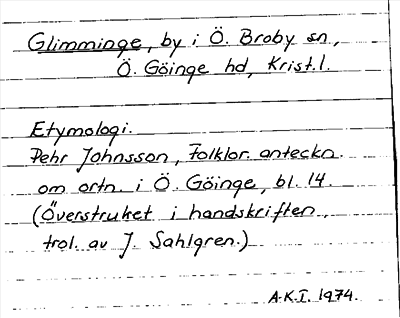 Glimminge, by i Ö. Broby sn.,
Ö. Göinge hd, Krist. l.
Etymologi.
Pehr Johnsson, Folklor. anteckn.
om ortn. i Ö. Göinge, bl. 14.
(Överstruket i handskriften,
trol. av J. Sahlgren.)
A.K.I. 1974.